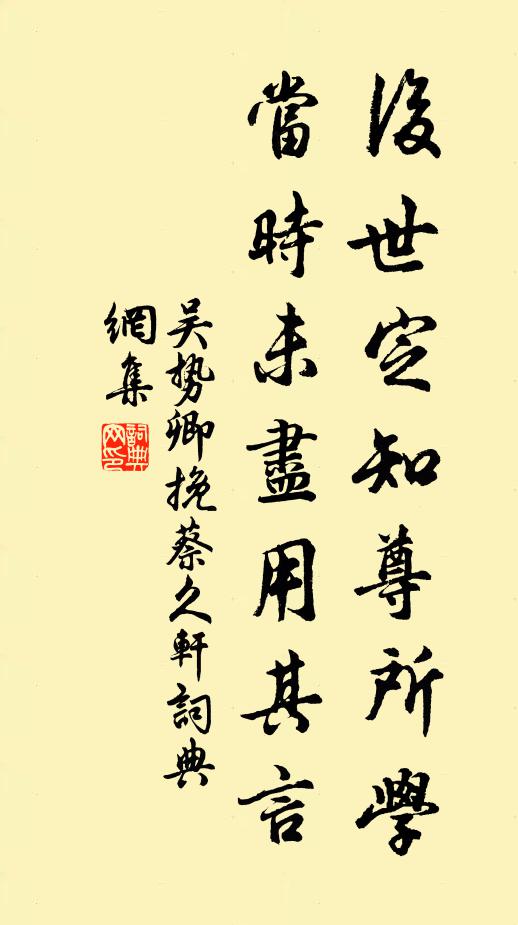 後世定知尊所學
當時未盡用其言
吴势卿挽蔡久軒詞典
網集
詞典網印